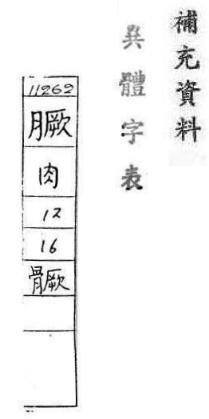 補充資料
異體字表
11262
𦠒
肉
12
16
𩪗